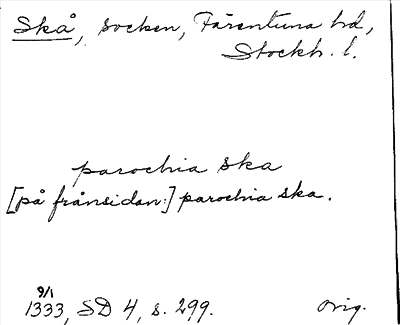 Skå, socken, Färentuna hd,
Stockh. l.
parochia ska
[på frånsidan:] parochia ska.
9/1
1333, SD 4, s. 299. orig.